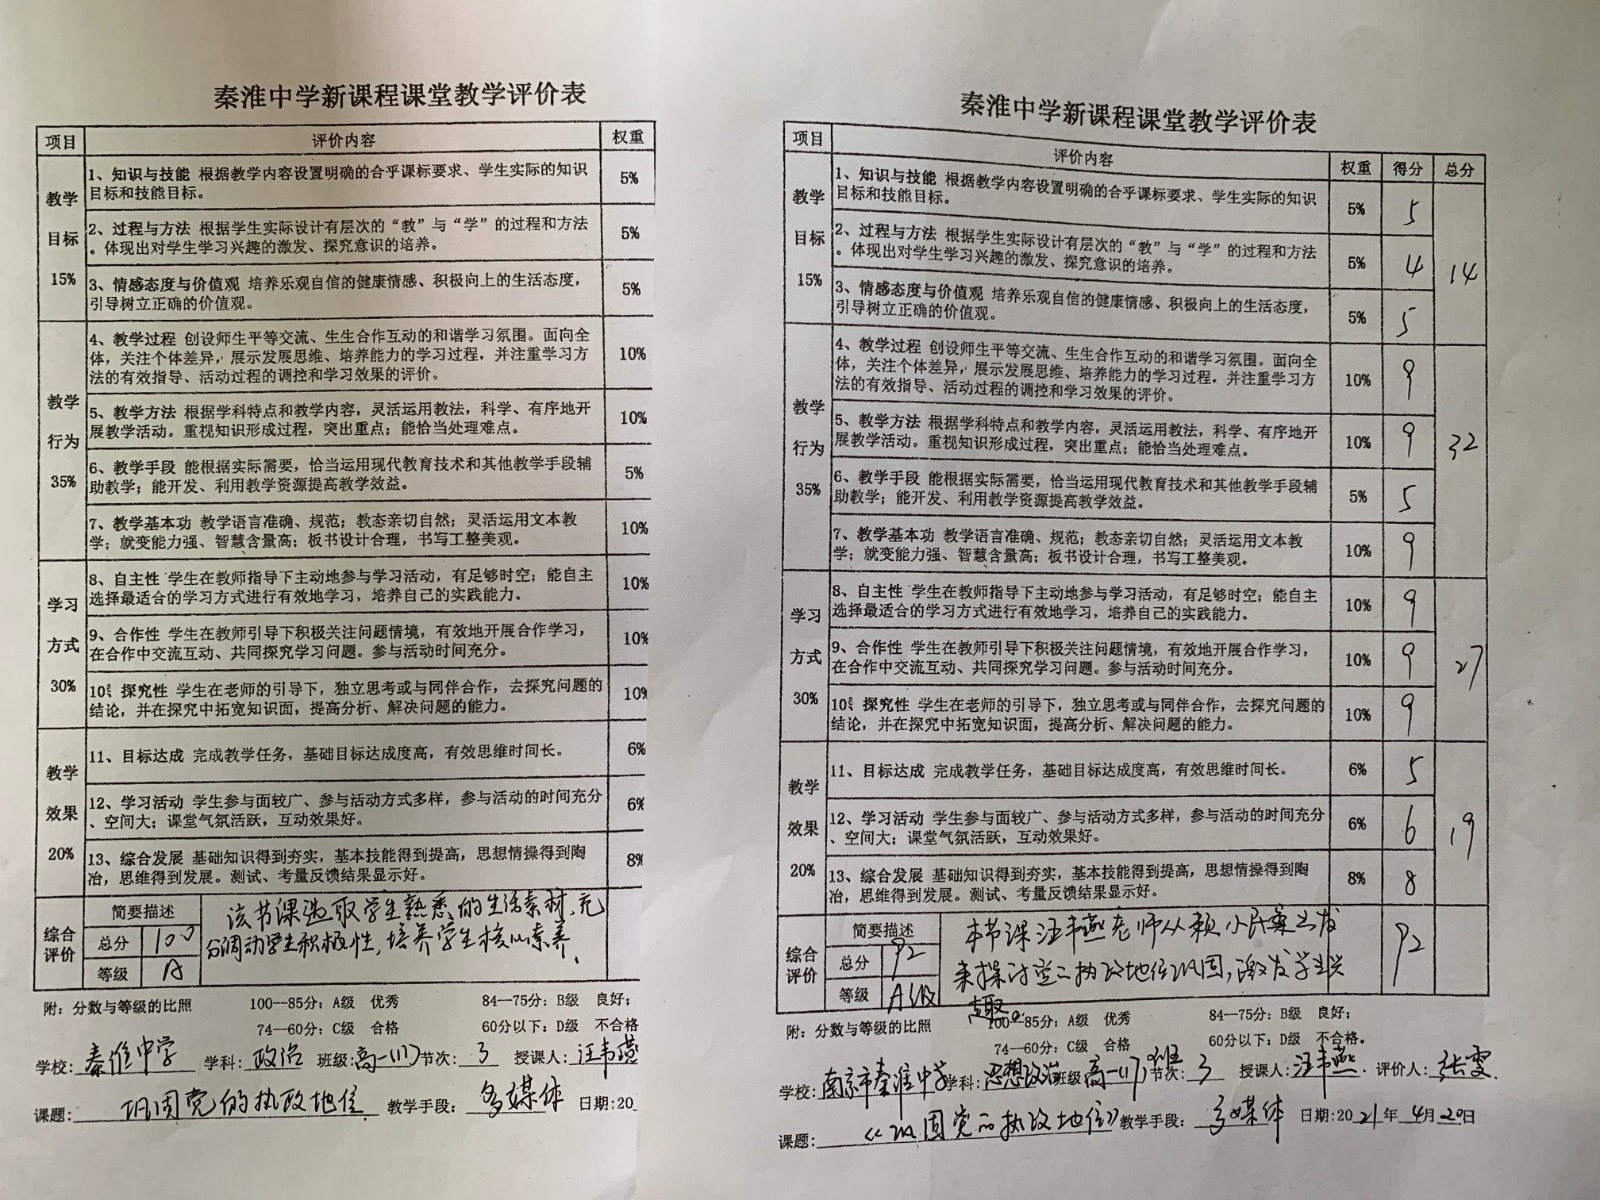 秦淮中学新课程课堂教学评价表
项目 评价内容 权重
教学目标 15%
1、知识与技能 根据教学内容设置明确的合乎课标要求、学生实际的知识 5%
目标和技能目标。
2、过程与方法 根据学生实际设计有层次的“教”与“学”的过程和方法 5%
。体现出对学生学习兴趣的激发、探究意识的培养。
3、情感态度与价值观 培养乐观自信的健康情感、积极向上的生活态度， 5%
引导树立正确的价值观。
教学行为 35%
4、教学过程 创设师生平等交流、生生合作互动的和谐学习氛围。面向全 10%
体，关注个体差异，展示发展思维、培养能力的学习过程，并注重学习方
法的有效指导、活动过程的调控和学习效果的评价。
5、教学方法 根据学科特点和教学内容，灵活运用教法，科学、有序地开 10%
展教学活动。重视知识形成过程，突出重点；能恰当处理难点。
6、教学手段 能根据实际需要，恰当运用现代教育技术和其他教学手段辅 5%
助教学；能开发、利用教学资源提高教学效益。
7、教学基本功 教学语言准确、规范；教态亲切自然；灵活运用文本教 10%
学；就变能力强、智慧含量高；板书设计合理，书写工整美观。
学习方式 30%
8、自主性 学生在教师指导下主动地参与学习活动，有足够时空；能自主 10%
选择最适合的学习方式进行有效地学习，培养自己的实践能力。
9、合作性 学生在教师引导下积极关注问题情境，有效地开展合作学习， 10%
在合作中交流互动、共同探究学习问题。参与活动时间充分。
10、探究性 学生在老师的引导下，独立思考或与同伴合作，去探究问题的 10%
结论，并在探究中拓宽知识面，提高分析、解决问题的能力。
教学效果 20%
11、目标达成 完成教学任务，基础目标达成度高，有效思维时间长。 6%
12、学习活动 学生参与面较广、参与活动方式多样，参与活动的时间充分 6%
、空间大；课堂气氛活跃，互动效果好。
13、综合发展 基础知识得到夯实，基本技能得到提高，思想情操得到陶 8%
冶，思维得到发展。测试、考量反馈结果显示好。
综合评价 简要描述 该节课选取学生熟悉的生活素材，充
分调动学生积极性，培养学生核心素养、
总分 100
等级 A
附：分数与等级的比照 100—85分：A级 优秀 84—75分：B级 良好；
74—60分：C级 合格 60分以下：D级 不合格
学校：秦淮中学 学科：政治 班级：高一(1) 节次：3 授课人：汪韦燕
课题：巩固党的执政地位 教学手段：多媒体 日期：20
秦淮中学新课程课堂教学评价表
项目 评价内容 权重 得分 总分
教学目标 15% 14
1、知识与技能 根据教学内容设置明确的合乎课标要求、学生实际的知识 5% 5
目标和技能目标。
2、过程与方法 根据学生实际设计有层次的“教”与“学”的过程和方法 5% 4
。体现出对学生学习兴趣的激发、探究意识的培养。
3、情感态度与价值观 培养乐观自信的健康情感、积极向上的生活态度， 5% 5
引导树立正确的价值观。
教学行为 35% 32
4、教学过程 创设师生平等交流、生生合作互动的和谐学习氛围。面向全 10% 9
体，关注个体差异，展示发展思维、培养能力的学习过程，并注重学习方
法的有效指导、活动过程的调控和学习效果的评价。
5、教学方法 根据学科特点和教学内容，灵活运用教法，科学、有序地开 10% 9
展教学活动。重视知识形成过程，突出重点；能恰当处理难点。
6、教学手段 能根据实际需要，恰当运用现代教育技术和其他教学手段辅 5% 5
助教学；能开发、利用教学资源提高教学效益。
7、教学基本功 教学语言准确、规范；教态亲切自然；灵活运用文本教 10% 9
学；就变能力强、智慧含量高；板书设计合理，书写工整美观。
学习方式 30% 27
8、自主性 学生在教师指导下主动地参与学习活动，有足够时空；能自主 10% 9
选择最适合的学习方式进行有效地学习，培养自己的实践能力。
9、合作性 学生在教师引导下积极关注问题情境，有效地开展合作学习， 10% 9
在合作中交流互动、共同探究学习问题。参与活动时间充分。
10、探究性 学生在老师的引导下，独立思考或与同伴合作，去探究问题的 10% 9
结论，并在探究中拓宽知识面，提高分析、解决问题的能力。
教学效果 20% 19
11、目标达成 完成教学任务，基础目标达成度高，有效思维时间长。 6% 5
12、学习活动 学生参与面较广、参与活动方式多样，参与活动的时间充分 6% 6
、空间大；课堂气氛活跃，互动效果好。
13、综合发展 基础知识得到夯实，基本技能得到提高，思想情操得到陶 8% 8
冶，思维得到发展。测试、考量反馈结果显示好。
综合评价 简要描述 本节课汪韦燕老师从小 92
来探讨党的执政地位巩固，激发学生兴
趣。
总分 92
等级 A级
附：分数与等级的比照 100—85分：A级 优秀 84—75分：B级 良好；
74—60分：C级 合格 60分以下：D级 不合格。
学校：南京市秦淮中学 学科：思想政治 班级：高一 节次：3 授课人：汪韦燕 评价人：张雯
课题：《巩固党的执政地位》 教学手段：多媒体 日期：2021年4月20日